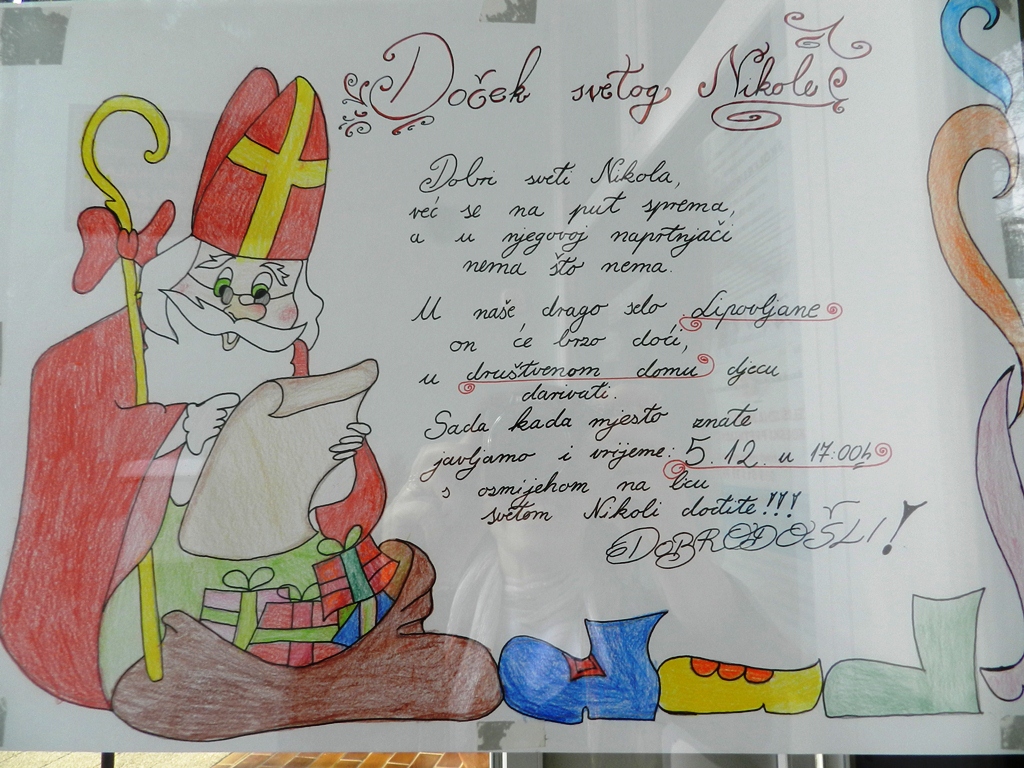 Doček svetog Nikole
Dobri sveti Nikola,
već se na put sprema,
a u njegovoj naprtnjači
nema što nema.
U naše drago selo Lipovljane
on će brzo doći,
u društvenom domu djecu
darivati.
Sada kada mjesto znate
javljamo i vrijeme: 5.12. u 17:00h
s osmijehom na licu
svetom Nikoli dođite!!!
DOBRODOŠLI!